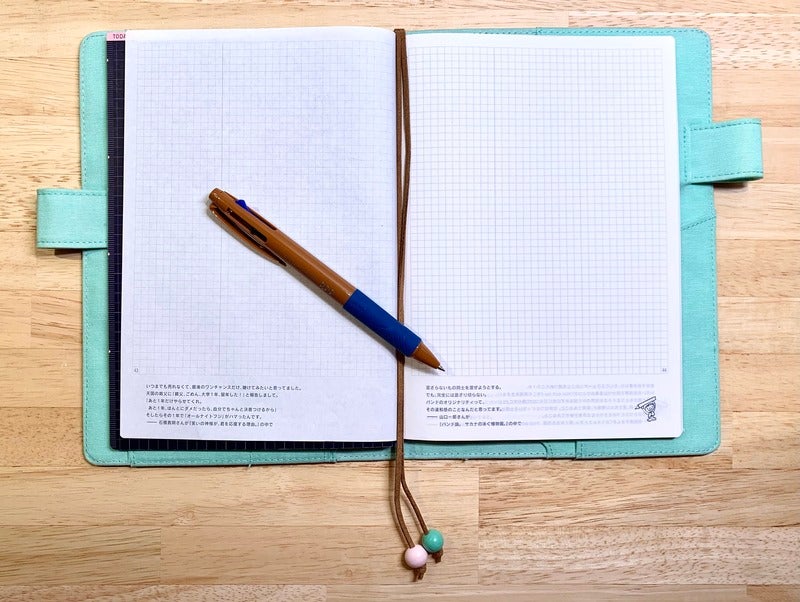 TODA
いつまでも売れなくて、最後のワンチャンスだけ、賭けてみたいと思ってました。
天国の親父に「親父、ごめん。大学1年、留年した!」と報告しまして。
「あと1年だけやらせてくれ。
あと1年、ほんとにダメだったら、自分でちゃんと決着つけるから」
そしたらその1年で『オールナイトフジ』がハマったんです。
―― 石橋貴明さんが『笑いの神様が、君を応援する理由。』の中で
混ざらないもの同士を混ぜようとする。
でも、完全には混ざり切らない。
バンドのオリジナリティって、
その違和感のことなんだと思ってます。
―― 山口一郎さんが
『バンド論。』の中で